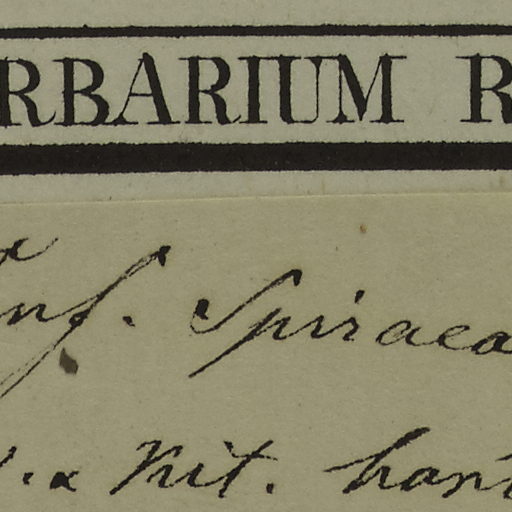 RBARIUM R
nf. Spiraea
. & Kit. han